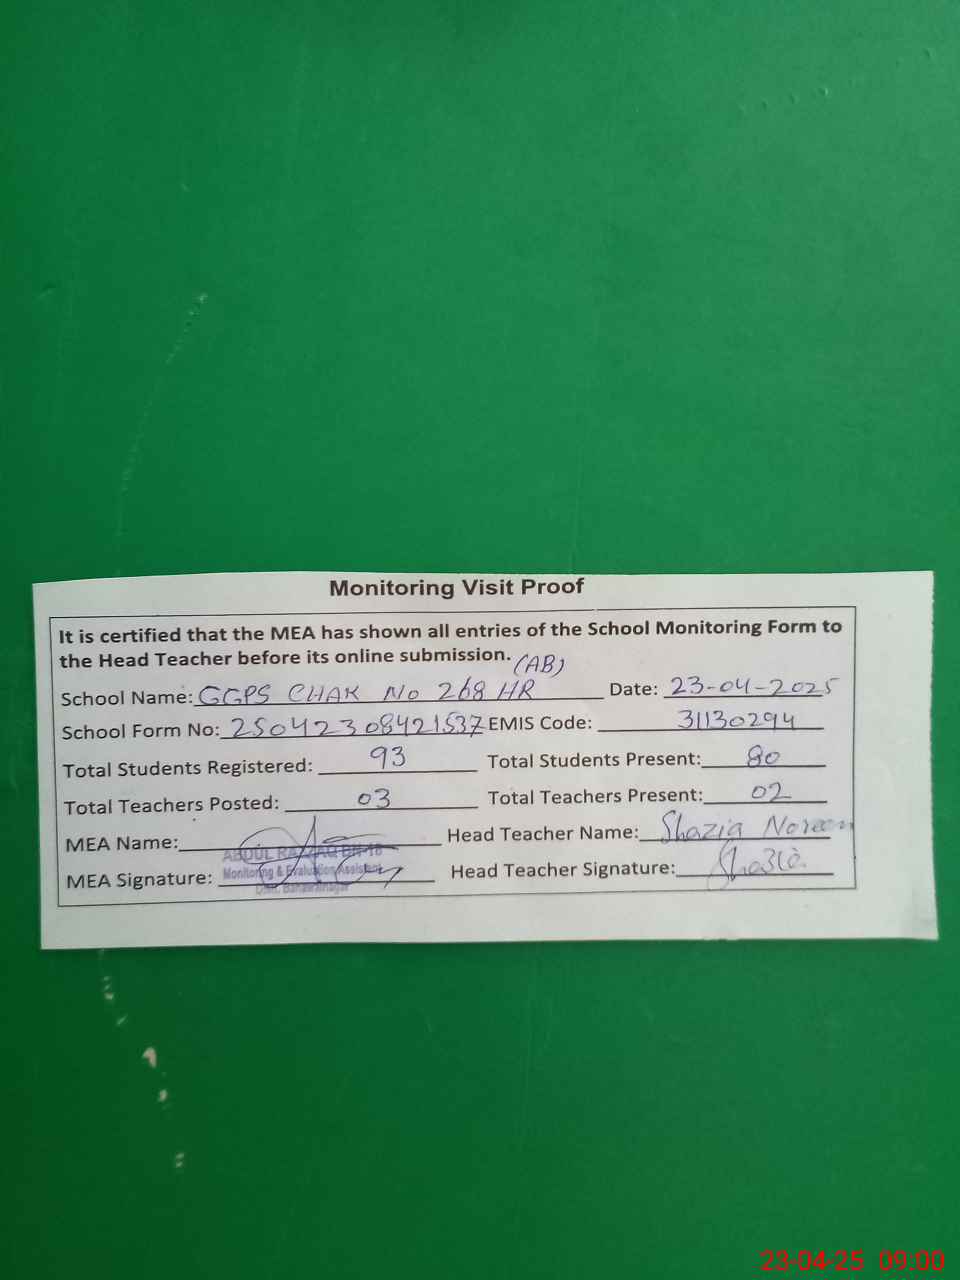 Monitoring Visit Proof
It is certified that the MEA has shown all entries of the School Monitoring Form to
the Head Teacher before its online submission. (AB)
School Name: GGPS CHAK No 268 HR Date: 23-04-2025
School Form No: 25042308421537 EMIS Code: 31130294
Total Students Registered: 93 Total Students Present: 80
Total Teachers Posted: 03 Total Teachers Present: 02
MEA Name: Head Teacher Name: Shazia Noreen
ABDUL RAZZAQ
MEA Signature: Monitoring & Evaluation Assistant Head Teacher Signature: Shazia
Distt. Bahawalnagar
23-04-25 09:00